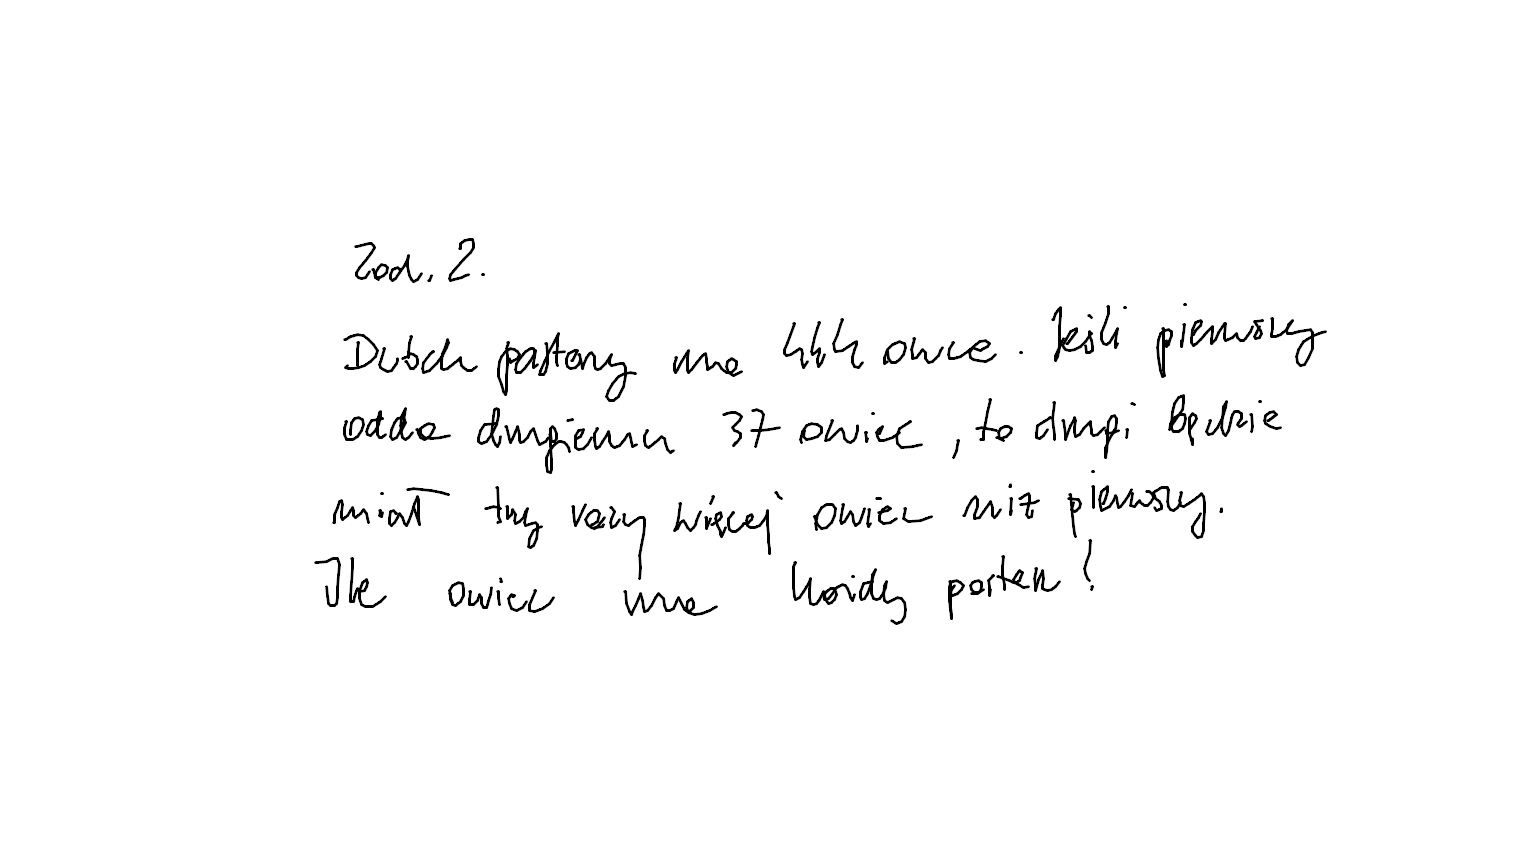 Zad. 2.
Dwóch pasterzy ma 444 owce. Jeśli pierwszy
odda drugiemu 37 owiec, to drugi będzie
miał trzy razy więcej owiec niż pierwszy.
Ile owiec ma każdy pasterz?